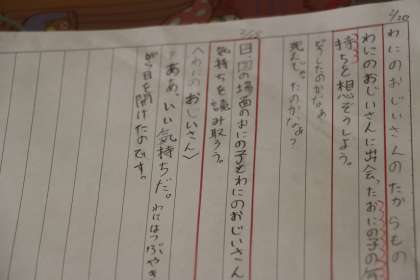 2/20
わにのおじいさんのたからもの
わにのおじいさんに出会ったおにの子の気
持ちを想ぞうしよう。
どうしたのかなあ
死んじゃったのかなあ?
2/5
日 の場面のおにの子とわにのおじいさん
気持ちを読み取ろう。
〈わにのおじいさん〉
ああ、いい気持ちだ。わにはつぶやき
がら目を開けたのです。